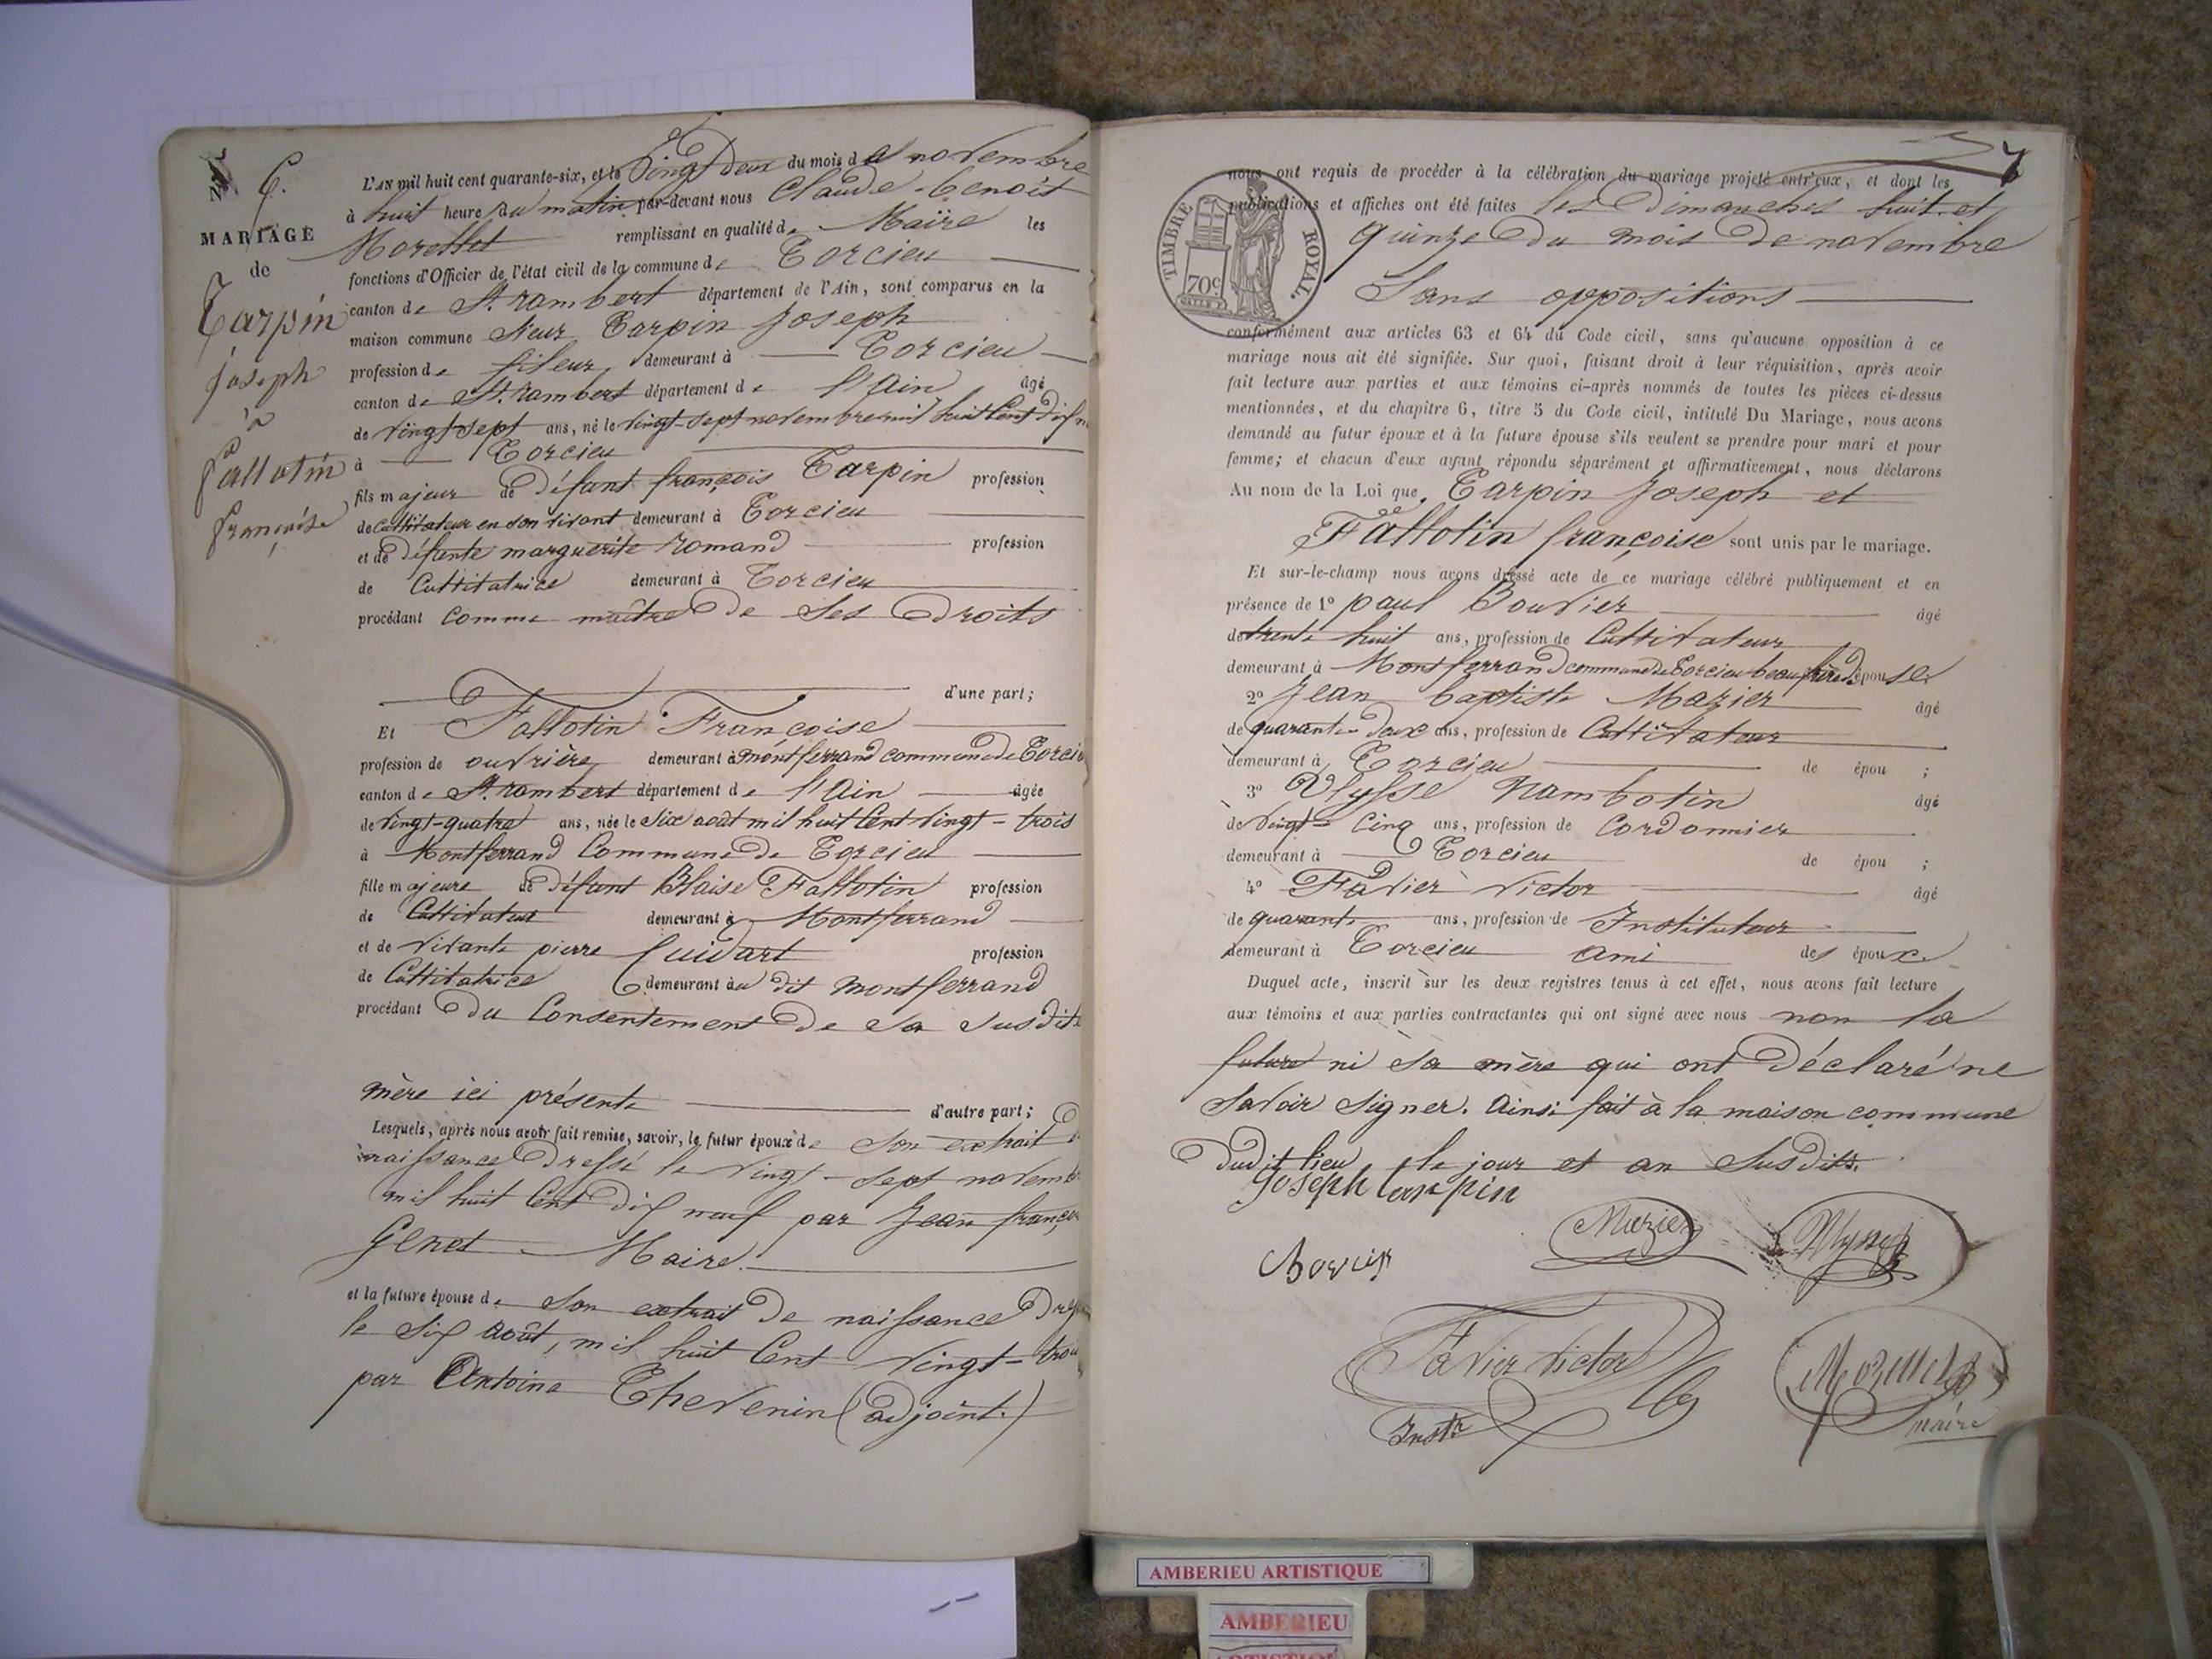 N° 6.
MARIAGE
de
Tarpin
joseph
à
fallotin
françoise
L'AN mil huit cent quarante-six, et le vingt deux du mois de novembre
à huit heure du matin par-devant nous Claude-benoit
Morellet remplissant en qualité de Maire les
fonctions d'Officier de l'état civil de la commune de Torcieu
canton de St. rambert département de l'Ain, sont comparus en la
maison commune sieur Tarpin joseph
profession de fileur demeurant à Torcieu
canton de St. rambert département de l'Ain âgé
de vingt-sept ans, né le vingt-sept novembre mil huit Cent dix n
à Torcieu
fils majeur de défunt françois Tarpin profession
de Cultivateur en son vivant demeurant à Torcieu
et de défunte marguerite romand profession
de Cultivatrice demeurant à Torcieu
procédant comme maître de ses droits
d'une part;
Et Fallotin Françoise
profession de ouvrière demeurant à montferrand commune de Torcieu
canton de St. rambert département de l'Ain âgée
de vingt-quatre ans, née le six août mil huit Cent vingt-trois
à Montferrand Commune de Torcieu
fille majeure de défunt Blaise Fallotin profession
de Cultivateur demeurant à Montferrand
et de vivante pierre Cuidart profession
de Cultivatrice demeurant au dit montferrand
procédant du Consentement de sa susdite
mère ici présente d'autre part;
Lesquels, après nous avoir fait remise, savoir, le futur époux de son extrait de
naissance dressé le vingt-sept novemb
mil huit Cent dix neuf par jean françois
Genet Maire
et la future épouse de son extrait de naissance dressé
le six août, mil huit Cent vingt-trois
par Antoine Thevenin (adjoint.)
7
TIMBRE ROYAL.
70c
nous ont requis de procéder à la célébration du mariage projeté entr'eux, et dont les
publications et affiches ont été faites les dimanches huit et
quinze du mois de novembre
Sans oppositions
conformément aux articles 63 et 64 du Code civil, sans qu'aucune opposition à ce
mariage nous ait été signifiée. Sur quoi, faisant droit à leur réquisition, après avoir
fait lecture aux parties et aux témoins ci-après nommés de toutes les pièces ci-dessus
mentionnées, et du chapitre 6, titre 5 du Code civil, intitulé Du Mariage, nous avons
demandé au futur époux et à la future épouse s'ils veulent se prendre pour mari et pour
femme; et chacun d'eux ayant répondu séparément et affirmativement, nous déclarons
Au nom de la Loi que Tarpin joseph et
Fallotin françoise sont unis par le mariage.
Et sur-le-champ nous avons dressé acte de ce mariage célébré publiquement et en
présence de 1° paul Bouvier âgé
de trente huit ans, profession de Cultivateur
demeurant à Montferrand commune de Torcieu beau frère de épouse;
2° jean baptiste Mazier âgé
de quarante-deux ans, profession de Cultivateur
demeurant à Torcieu de épou ;
3° Ulysse Nambotin âgé
de vingt-Cinq ans, profession de Cordonnier
demeurant à Torcieu de épou ;
4° Favier victor âgé
de quarante ans, profession de Instituteur
demeurant à Torcieu ami des époux.
Duquel acte, inscrit sur les deux registres tenus à cet effet, nous avons fait lecture
aux témoins et aux parties contractantes qui ont signé avec nous non la
future ni sa mère qui ont déclaré ne
savoir signer. Ainsi fait à la maison commune
dudit lieu le jour et an susdits.
joseph tarpin
Mazier
Ulysse
Bovier
Favier victor
Instr
Morellet
maire
AMBERIEU ARTISTIQUE
AMBERIEU
ARTISTIQUE